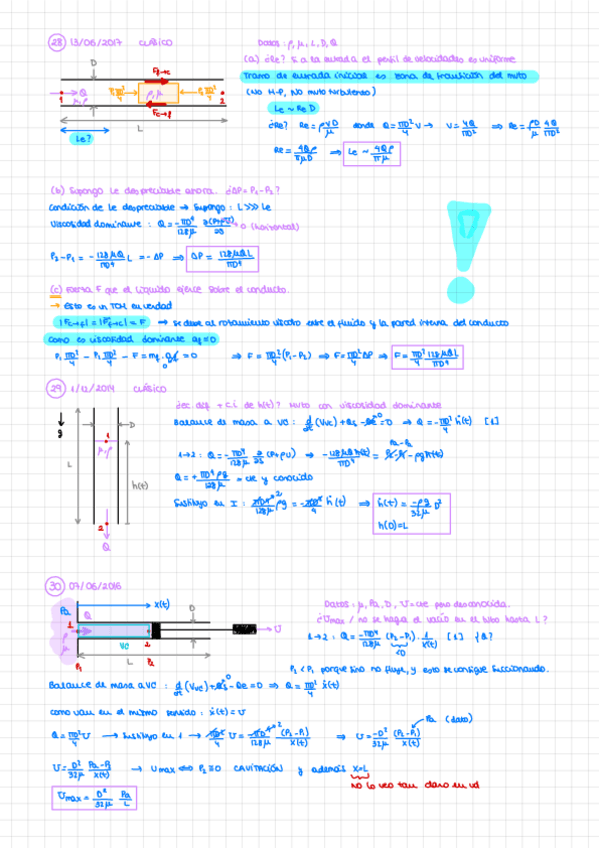 28 13/06/2017 CLÁSICO
Datos: ρ, μ, L, D, Q
(a) ¿Re? Si a la entrada el perfil de velocidades es uniforme
Tramo de entrada inicial es zona de transición del
(No H-P, No muto turbulento)
Le ~ Re D
¿Re? Re = ρVD/μ donde Q = πD²/4 V → V = 4Q/πD² ⇒ Re = ρD/μ 4Q/πD²
Re = 4Qρ/πμD ⇒ Le ~ 4Qρ/πμ
D
1 Q ρ, μ 2
L
Le?
(b) Supongo Le despreciable ahora. ¿ΔP = P₁-P₂?
Condición de Le despreciable → Supongo: L >>> Le
Viscosidad dominante: Q = -πD⁴/128μ ∂(P+ρU)/∂s → 0 (horizontal)
P₂-P₁ = -128μQ/πD⁴ L = -ΔP ⇒ ΔP = 128μQL/πD⁴
(c) Fuerza F que el líquido ejerce sobre el conducto.
→ Esto es un TCM en verdad
|Fc→f| = |Ff→c| = F → Se debe al rozamiento viscoso entre el fluido y la pared interna del conducto
como es viscosidad dominante af=0
P₁ πD²/4 - P₂ πD²/4 - F = mf·af = 0 ⇒ F = πD²/4 (P₁-P₂) ⇒ F = πD²/4 ΔP ⇒ F = πD²/4 128μQL/πD⁴
29 1/12/2014 CLÁSICO
¿ec. dif + c.i de h(t)? Muto con viscosidad dominante
Balance de masa a VC: d/dt (Vvc) + Qs - Qe = 0 ⇒ Q = -πD²/4 ḣ(t) [1]
1→2: Q = -πD⁴/128μ ∂/∂s (P+ρU) → -128μQh(t)/πD⁴ = Pa-Pa - ρgh(t)
Q = +πD⁴ρg/128μ = cte y conocido
Sustituyo en I: πD⁴/128μ ρg = -πD²/4 ḣ(t) ⇒ ḣ(t) = -ρg/32μ D²
h(0)=L
g
L
1 D
μ, ρ
h(t)
2
Q
30 07/06/2016
Datos: μ, Pa, D, U=cte pero desconocida.
¿Umax / no se haga el vacío en el tubo hasta L?
1→2: Q = -πD⁴/128μ (P₂-P₁) 1/x(t) [1] ¿Q?
<0
Pa x(t) D
1 Q 2 U
VC
P₁ L P₂
P₂ < P₁ porque sino no fluye, y esto se consigue succionando.
Balance de masa a VC: d/dt (Vvc) + Qs - Qe = 0 ⇒ Q = πD²/4 ẋ(t)
como van en el mismo sentido: ẋ(t) = U
Pa (dato)
Q = πD²/4 U → Sustituyo en 1 → πD²/4 U = -πD⁴/128μ (P₂-P₁)/x(t) ⇒ U = -D²/32μ (P₂-P₁)/x(t)
U = D²/32μ Pa-P₂/x(t) → Umax ⇔ P₂≡0 CAVITACIÓN y además x=L
No lo veo tan claro en vd
Umax = D²/32μ Pa/L